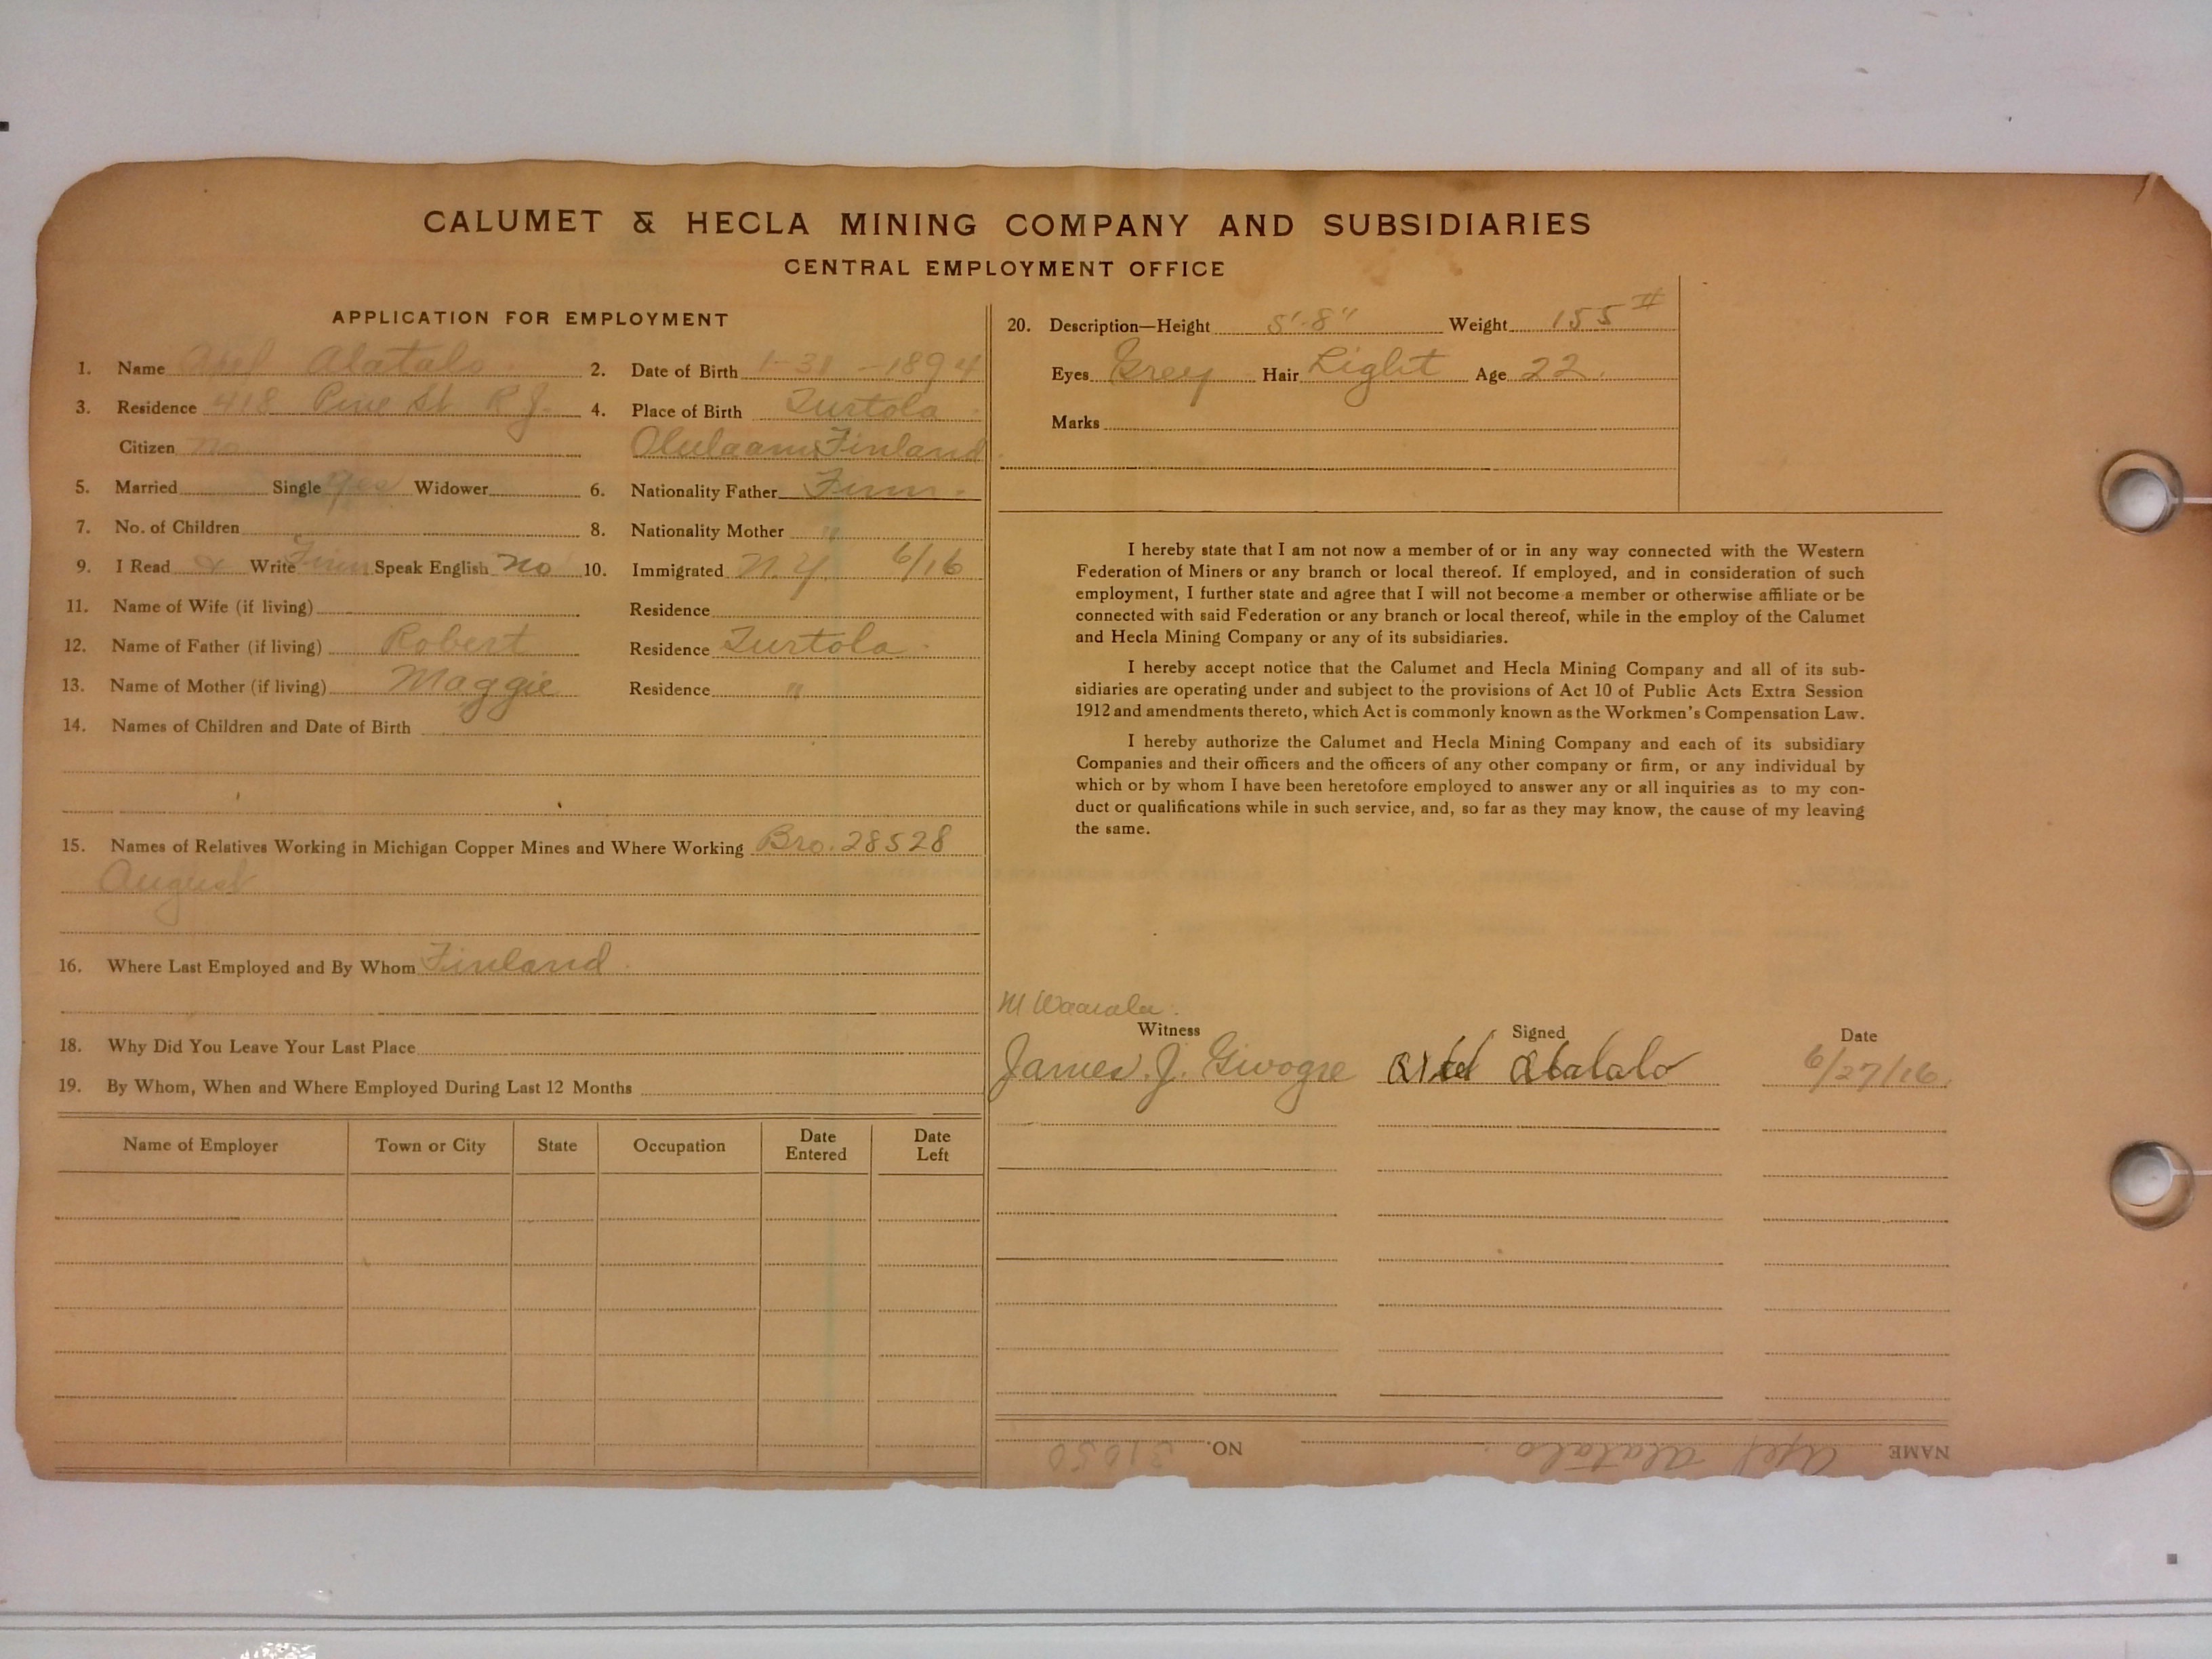 CALUMET & HECLA MINING COMPANY AND SUBSIDIARIES
CENTRAL EMPLOYMENT OFFICE
APPLICATION FOR EMPLOYMENT
1. Name Axel Alatalo 2. Date of Birth 1-31-1894
3. Residence 418 Pine St. R.J. 4. Place of Birth Turtola
Citizen no Finland
5. Married Single Yes Widower 6. Nationality Father Finn.
7. No. of Children 8. Nationality Mother "
9. I Read & Write Finn Speak English No 10. Immigrated N.Y. 6/16
11. Name of Wife (if living) Residence
12. Name of Father (if living) Robert Residence Turtola.
13. Name of Mother (if living) Maggie Residence "
14. Names of Children and Date of Birth
15. Names of Relatives Working in Michigan Copper Mines and Where Working Bro. 28528
August
16. Where Last Employed and By Whom Finland.
18. Why Did You Leave Your Last Place
19. By Whom, When and Where Employed During Last 12 Months
Name of Employer Town or City State Occupation Date Entered Date Left
20. Description—Height 5'-8" Weight 155 #
Eyes Grey Hair Light Age 22.
Marks
I hereby state that I am not now a member of or in any way connected with the Western
Federation of Miners or any branch or local thereof. If employed, and in consideration of such
employment, I further state and agree that I will not become a member or otherwise affiliate or be
connected with said Federation or any branch or local thereof, while in the employ of the Calumet
and Hecla Mining Company or any of its subsidiaries.
I hereby accept notice that the Calumet and Hecla Mining Company and all of its sub-
sidiaries are operating under and subject to the provisions of Act 10 of Public Acts Extra Session
1912 and amendments thereto, which Act is commonly known as the Workmen's Compensation Law.
I hereby authorize the Calumet and Hecla Mining Company and each of its subsidiary
Companies and their officers and the officers of any other company or firm, or any individual by
which or by whom I have been heretofore employed to answer any or all inquiries as to my con-
duct or qualifications while in such service, and, so far as they may know, the cause of my leaving
the same.
M Waarala.
Witness Signed Date
James. J. Alatalo 6/27/16.
NAME Axel Alatalo. NO. 31050